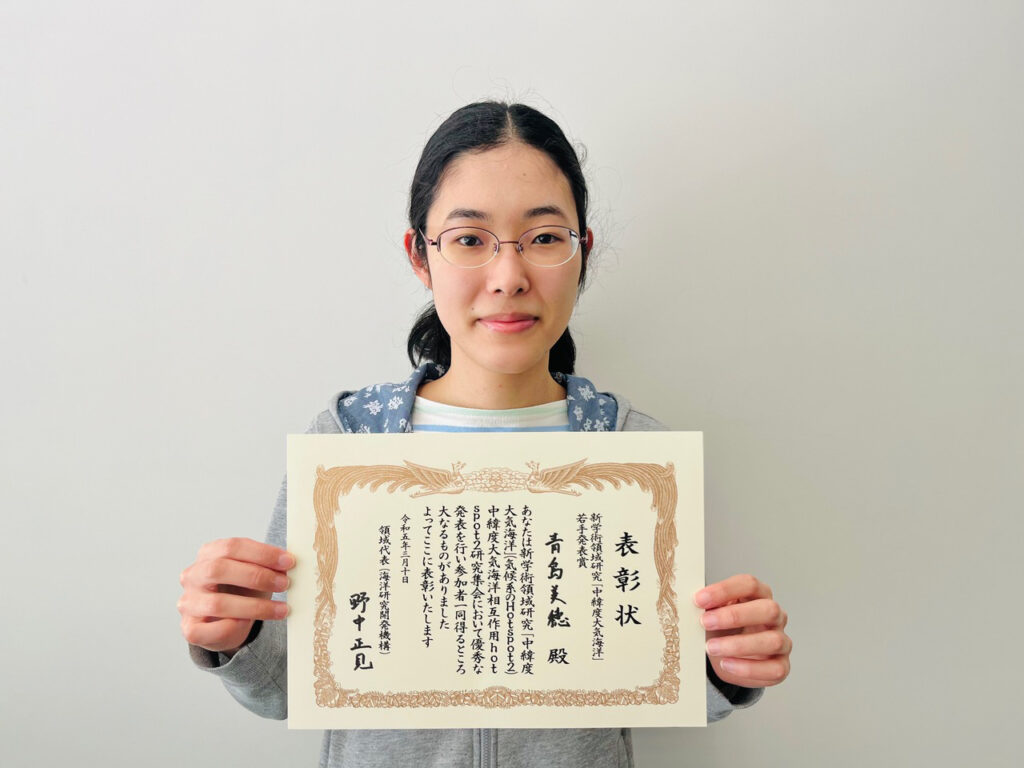 表彰状
新学術領域研究「中緯度大気海洋」
若手発表賞
青島美穂 殿
あなたは新学術領域研究「中緯度
大気海洋」(気候系のHotspot2)
中緯度大気海洋相互作用hot
spot2研究集会において優秀な
発表を行い参加者一同得るところ
大なるものがありました
よってここに表彰いたします
令和五年三月十日
領域代表(海洋研究開発機構)
野中正見